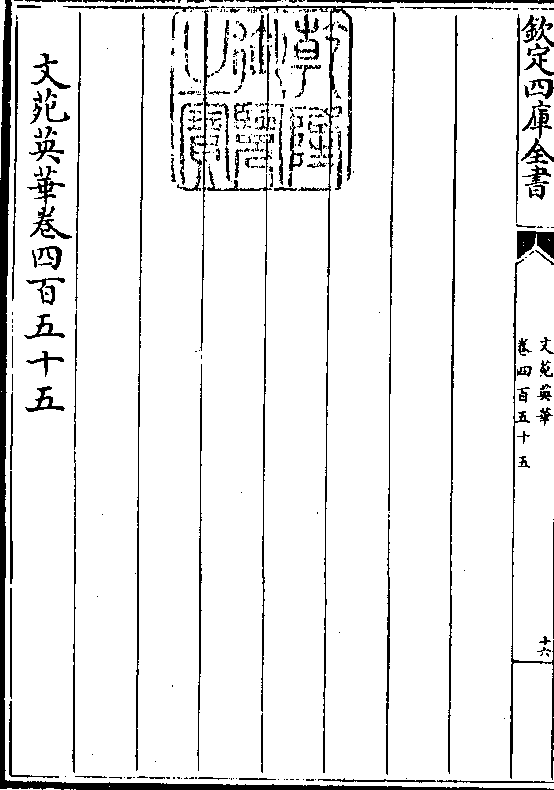 欽定四庫全書
文苑英華
卷四百五十五
十六
乾隆御覽之寶
文苑英華卷四百五十五